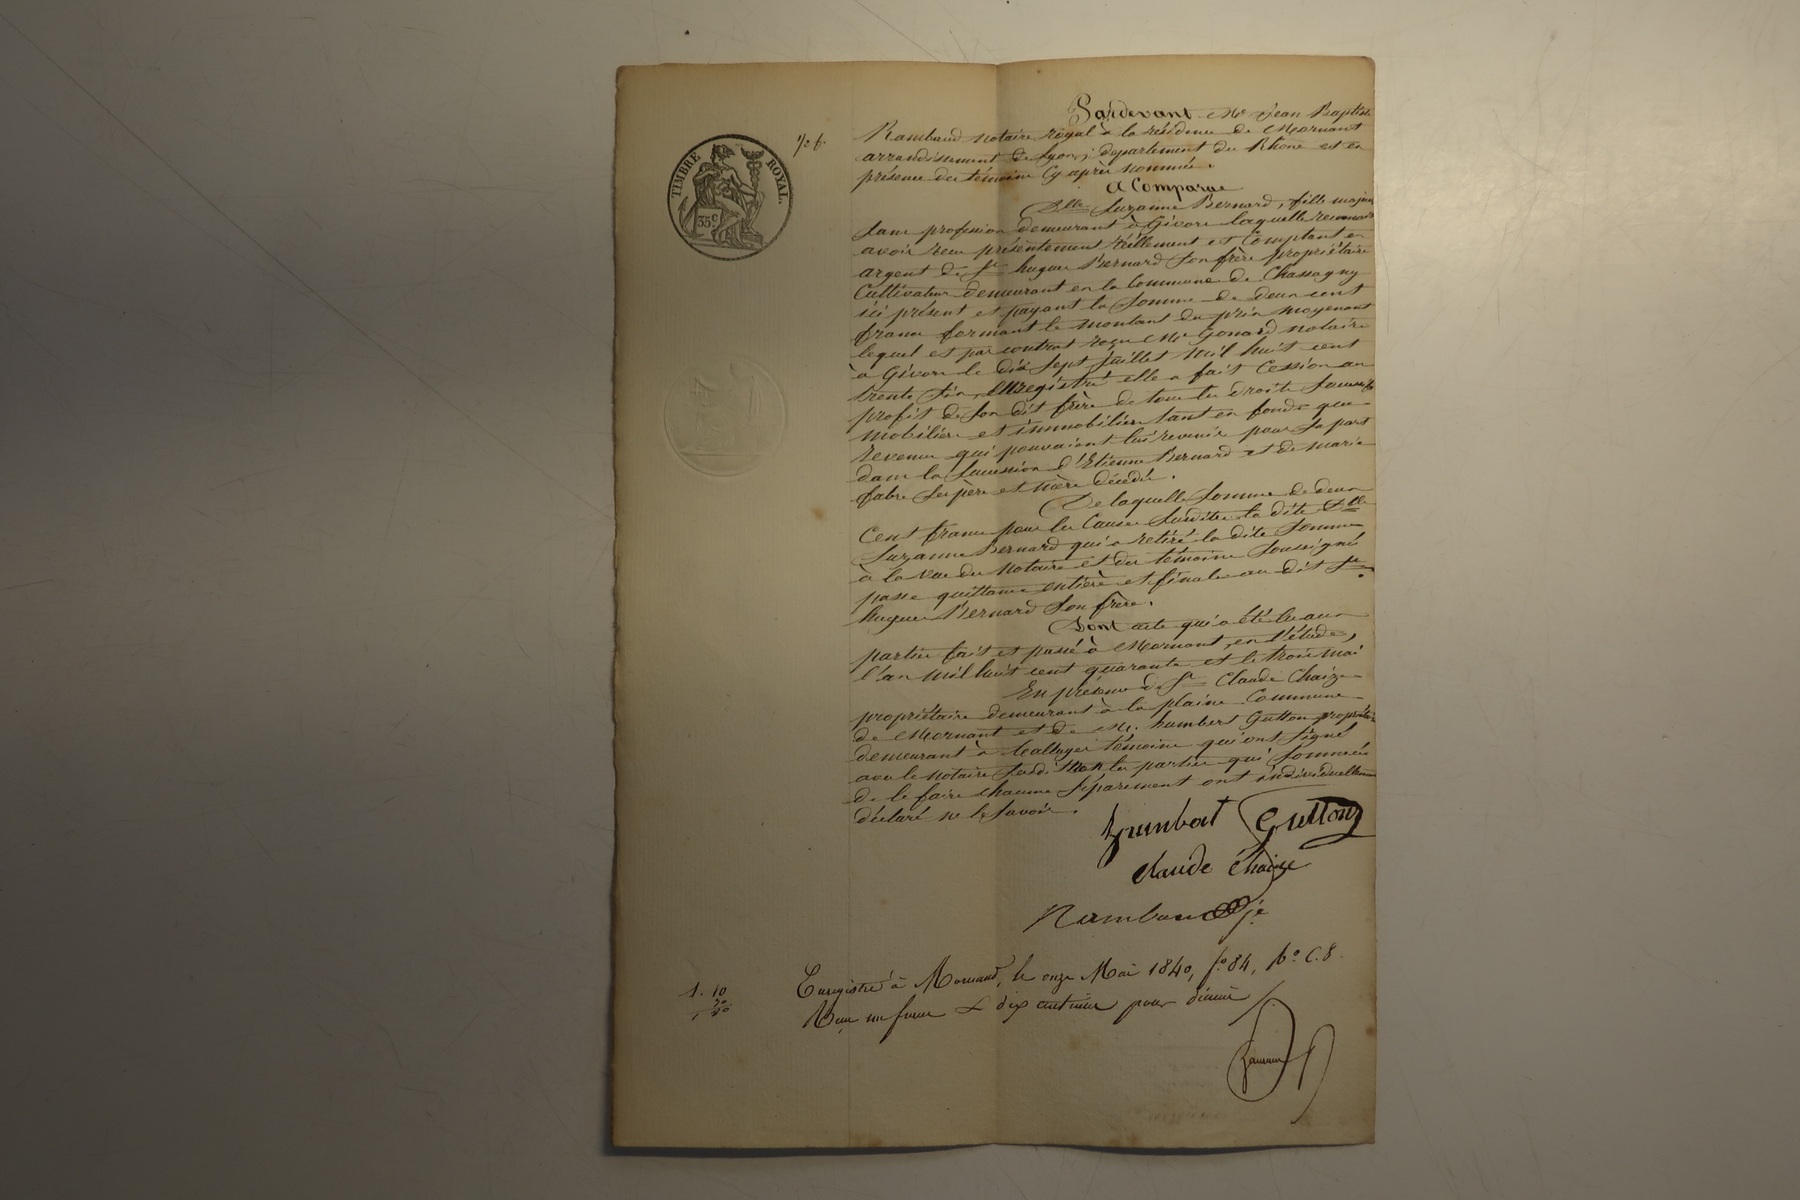 TIMBRE ROYAL.
35 c
Pardevant Me Jean Baptiste
Rambaud notaire royal à la résidence de Mornant
arrondissement de Lyon, département du Rhône et en
présence des témoins Cy après nommés.
A Comparue
Dlle Suzanne Bernard, fille majeure
Sans profession demeurant à Givors laquelle reconnait
avoir reçu présentement réellement et Comptant en
argent de Sr hugues Bernard Son frère propriétaire
Cultivateur demeurant en la Commune de Chassagny
ici présent et payant la Somme de deux cent
francs formant le montant du prix moyenant
lequel et par contrat reçu Me Gonard notaire
à Givors le dix Sept juillet mil huit cent
trente Six, Enregistré elle a fait Cession au
profit de Son dit frère de tous les droits Successifs
mobiliers et immobiliers tant en fonds que
revenus qui pouvaient lui revenir pour Sa part
dans la Succession d'Etienne Bernard et de marie
fabre Ses père et mère décédés.
De laquelle Somme de deux
Cent francs pour les Causes Susdites la dite Dlle
Suzanne Bernard qui a retiré la dite Somme
à la vue du Notaire et des témoins Soussignés
passe quittance entière et finale au dit Sr
hugues Bernard Son frère.
Dont acte qui a été lu aux
parties fait et passé à Mornant, en l'étude,
l'an mil huit cent quarante et le trois mai
En présence de Sr Claude Chaize
propriétaire demeurant à la plaine Commune
de Mornant et de Sr. humbert Gutton propriétaire
demeurant à témoins qui ont Signé
avec le Notaire Susdit Non les parties qui Sommées
de le faire chacune Séparement ont individuellement
déclaré ne le Savoir.
humbert Gutton
Claude Chaize
Rambaud
Enregistré à Mornant, le onze Mai 1840, fo 84, Vo C. 8.
Reçu un franc & dix centimes pour dixième
1. 10